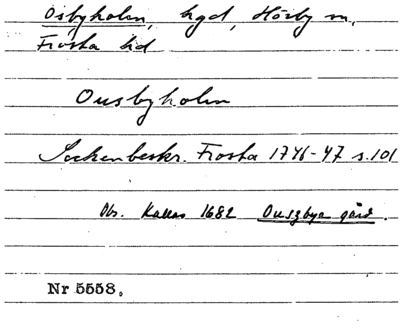 Osbyholm, hgd, Hörby sn,
Frosta hd
Ousbyholm
Sockenbeskr. Frosta 1746-47 s.101
Obs. Kallas 1682 Ouszbye gård.
Nr 5558.